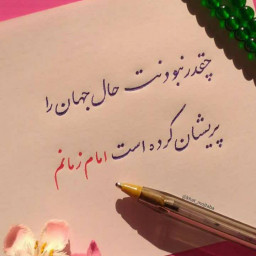 چقدر نبودنت حال جهان را
پریشان کرده است امام زمانم